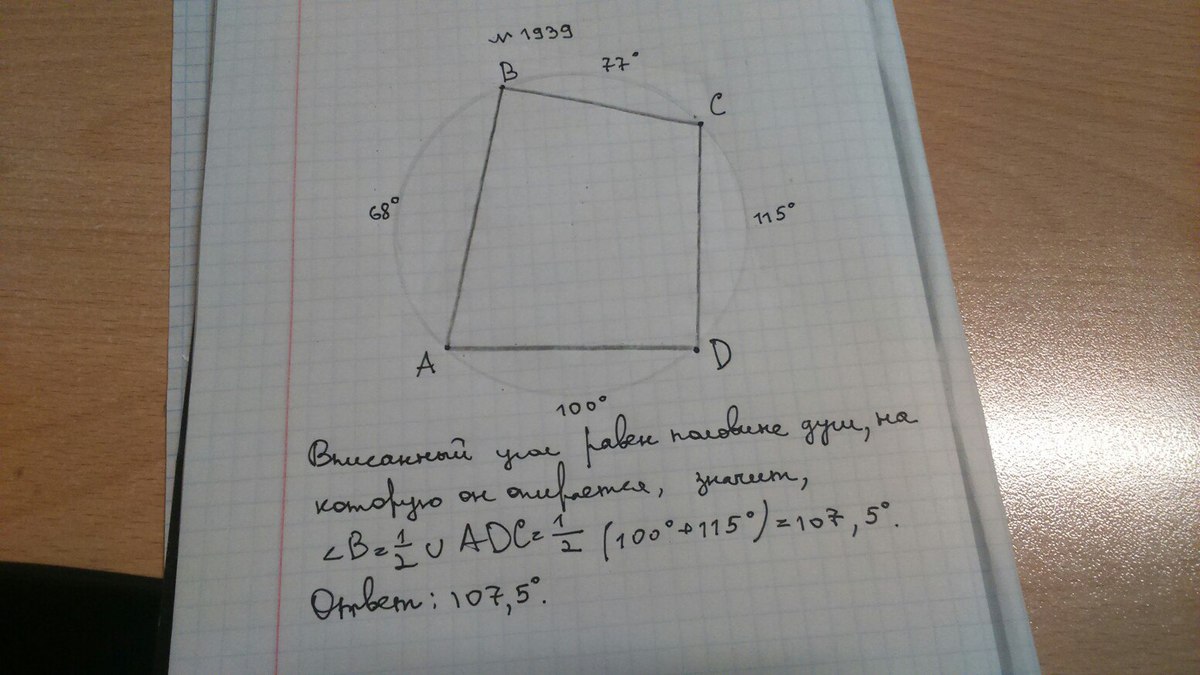 № 1939
B
77°
C
68°
115°
A
D
100°
Вписанный угол равен половине дуги, на
которую он опирается, значит,
∠B=½ ∪ ADC=½ (100°+115°)=107,5°.
Ответ: 107,5°.